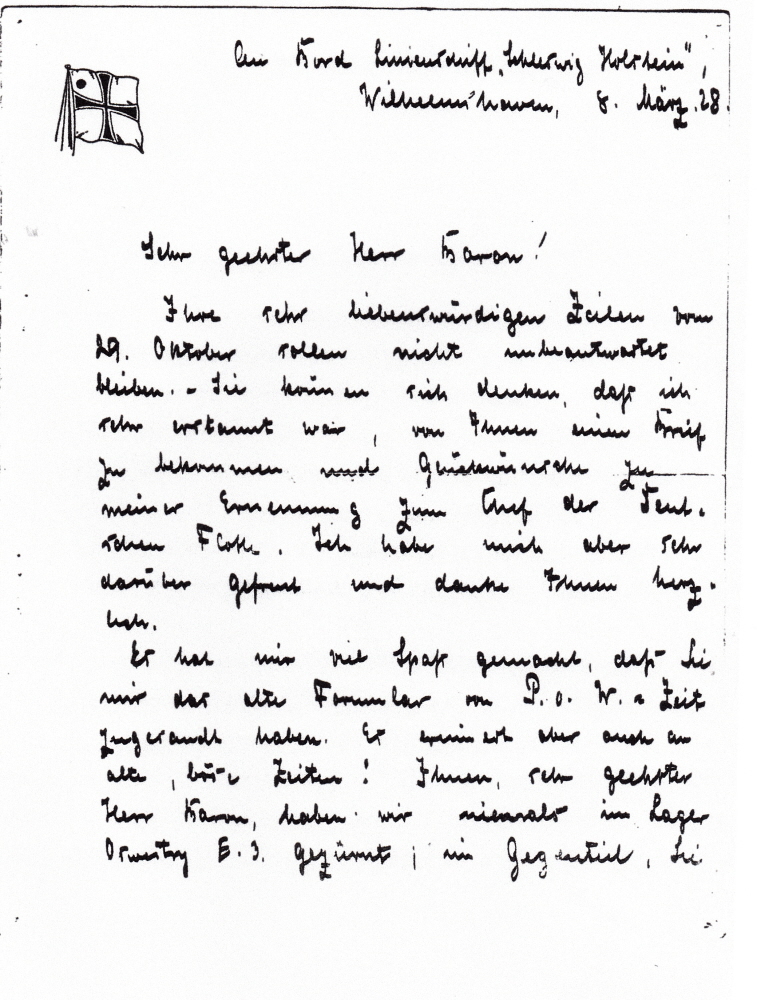 An Bord Linienschiff „Schleswig Holstein",
Wilhelmshaven, 8. März 28.
Sehr geehrter Herr Baron!
Ihre sehr liebenswürdigen Zeilen vom
29. Oktober sollen nicht unbeantwortet
bleiben. - Sie können sich denken, daß ich
sehr erstaunt war, von Ihnen einen Brief
zu bekommen und Glückwünsche zu
meiner Ernennung zum Chef der Deut-
schen Flotte. Ich habe mich aber sehr
darüber gefreut und danke Ihnen herz-
lich.
Es hat mir viel Spaß gemacht, daß Sie
mir das alte Formular von P.o.W.-Zeit
zugesandt haben. Es erinnert aber auch an
alte, böse Zeiten! Ihnen, sehr geehrter
Herr Baron, haben wir niemals im Lager
Oswestry E.3. gezürnt; im Gegenteil, Sie